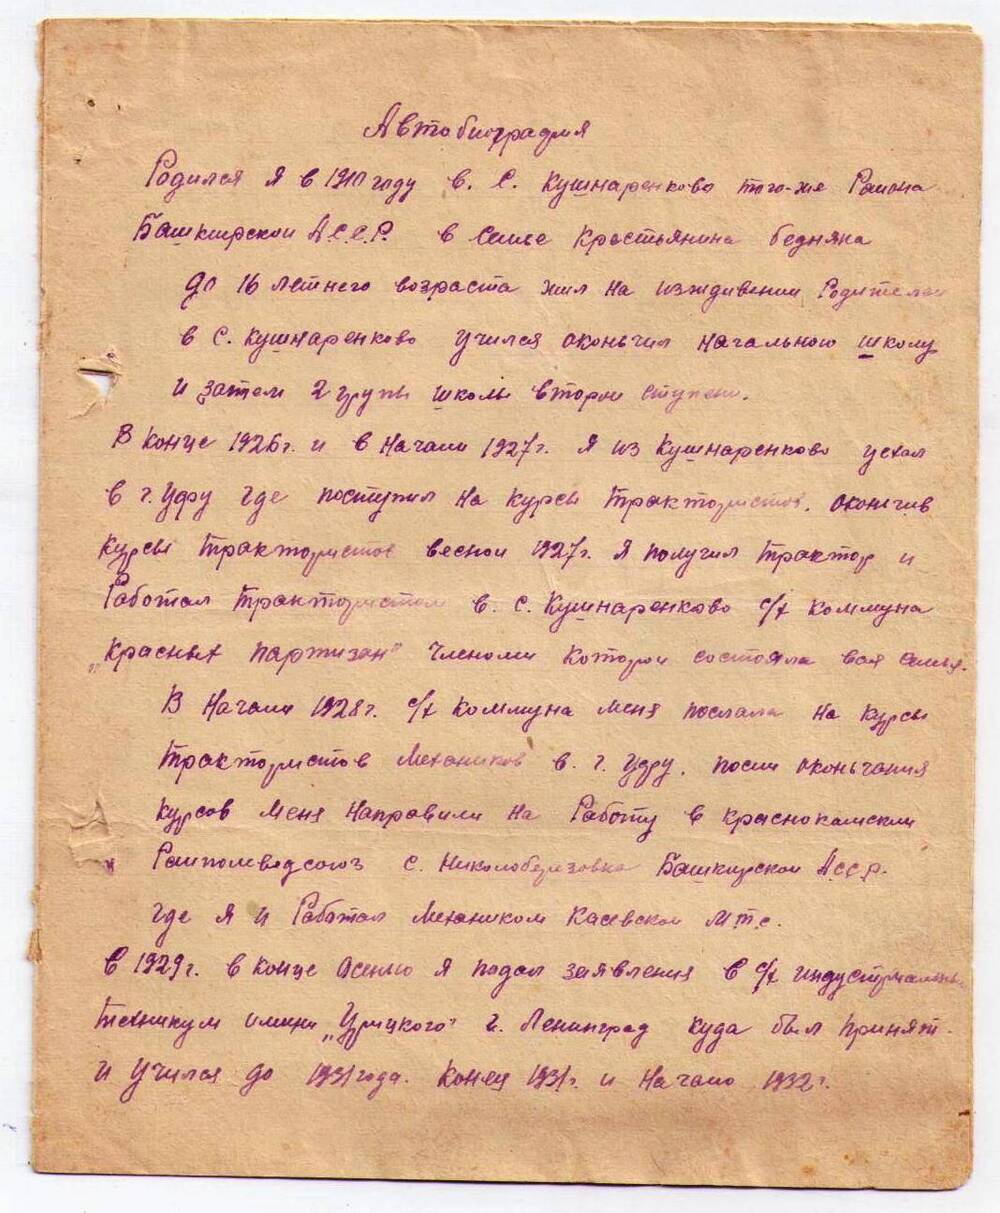 Автобиография
Родился я в 1910 году в. С. Кушнаренково того-же Района
Башкирской А.С.С.Р. в Семье Крестьянина бедняка
до 16 летнего возраста жил на иждивении Родителей
в С. Кушнаренково учился оконьчил начальною школу
и затем 2 групы школы второй ступени.
В конце 1926г. и в Начали 1927г. Я из Кушнаренково уехал
в г. Уфу где поступил на курсы трактористов. окончив
курсы трактористов весной 1927г. Я получил трактор и
Работал трактористом в. с. Кушнаренково с/х коммуна
„Красных партизан" членами которой состояла вся семья.
В Начали 1928г. с/х коммуна меня послала на курсы
трактористов Механиков в. г. Уфу. после оконьчания
курсов меня направили на Работу в Краснокамский
Райполеводсоюз с. Николоберезовка Башкирской А.С.С.Р.
где я и Работал Механиком Касевской М.т.с.
в 1929г. в конце Осенью я подал заявления в с/х индустриальный
техникум имени „Урицкого" г. Ленинград куда был принят.
и учился до 1931 года. Конец 1931г. и начало 1932г.